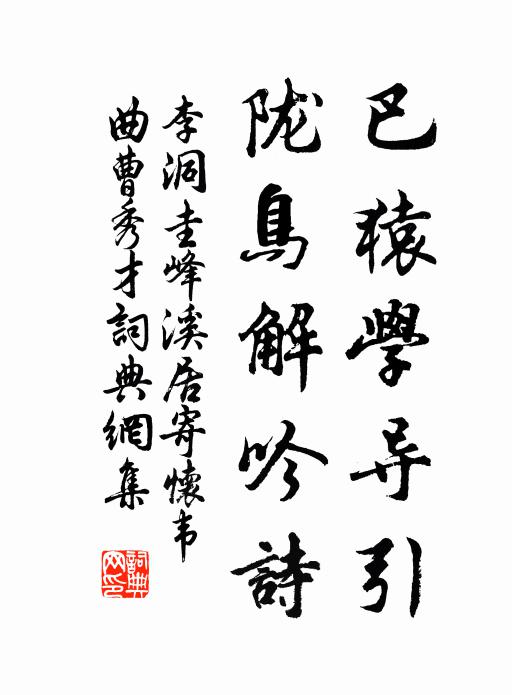 巴猿學导引
陇鳥解吟詩
李洞圭峰溪居寄懷韦
曲曹秀才詞典網集
詞典
网印